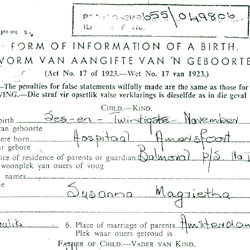 550498 06
FORM OF INFORMATION OF A BIRTH.
VORM VAN AANGIFTE VAN 'N GEBOORTE
(Act No. 17 of 1923.—Wet No. 17 van 1923.)
—The penalties for false statements wilfully made are the same as those for
VING.—Die straf vir opsetlik valse verklarings is dieselfde as in die geval
CHILD.—KIND.
birth Ses-en-Twintigste November
van geboorte
birth Hospitaal Amersfoort
geboorte
Place of residence of parents or guardian Balmoral P/S No
woonplek van ouers of voog
Susanna Magrietha
6. Place of marriage of parents Amsterdam
Plek waar ouers getroud is
FATHER OF CHILD.—VADER VAN KIND.